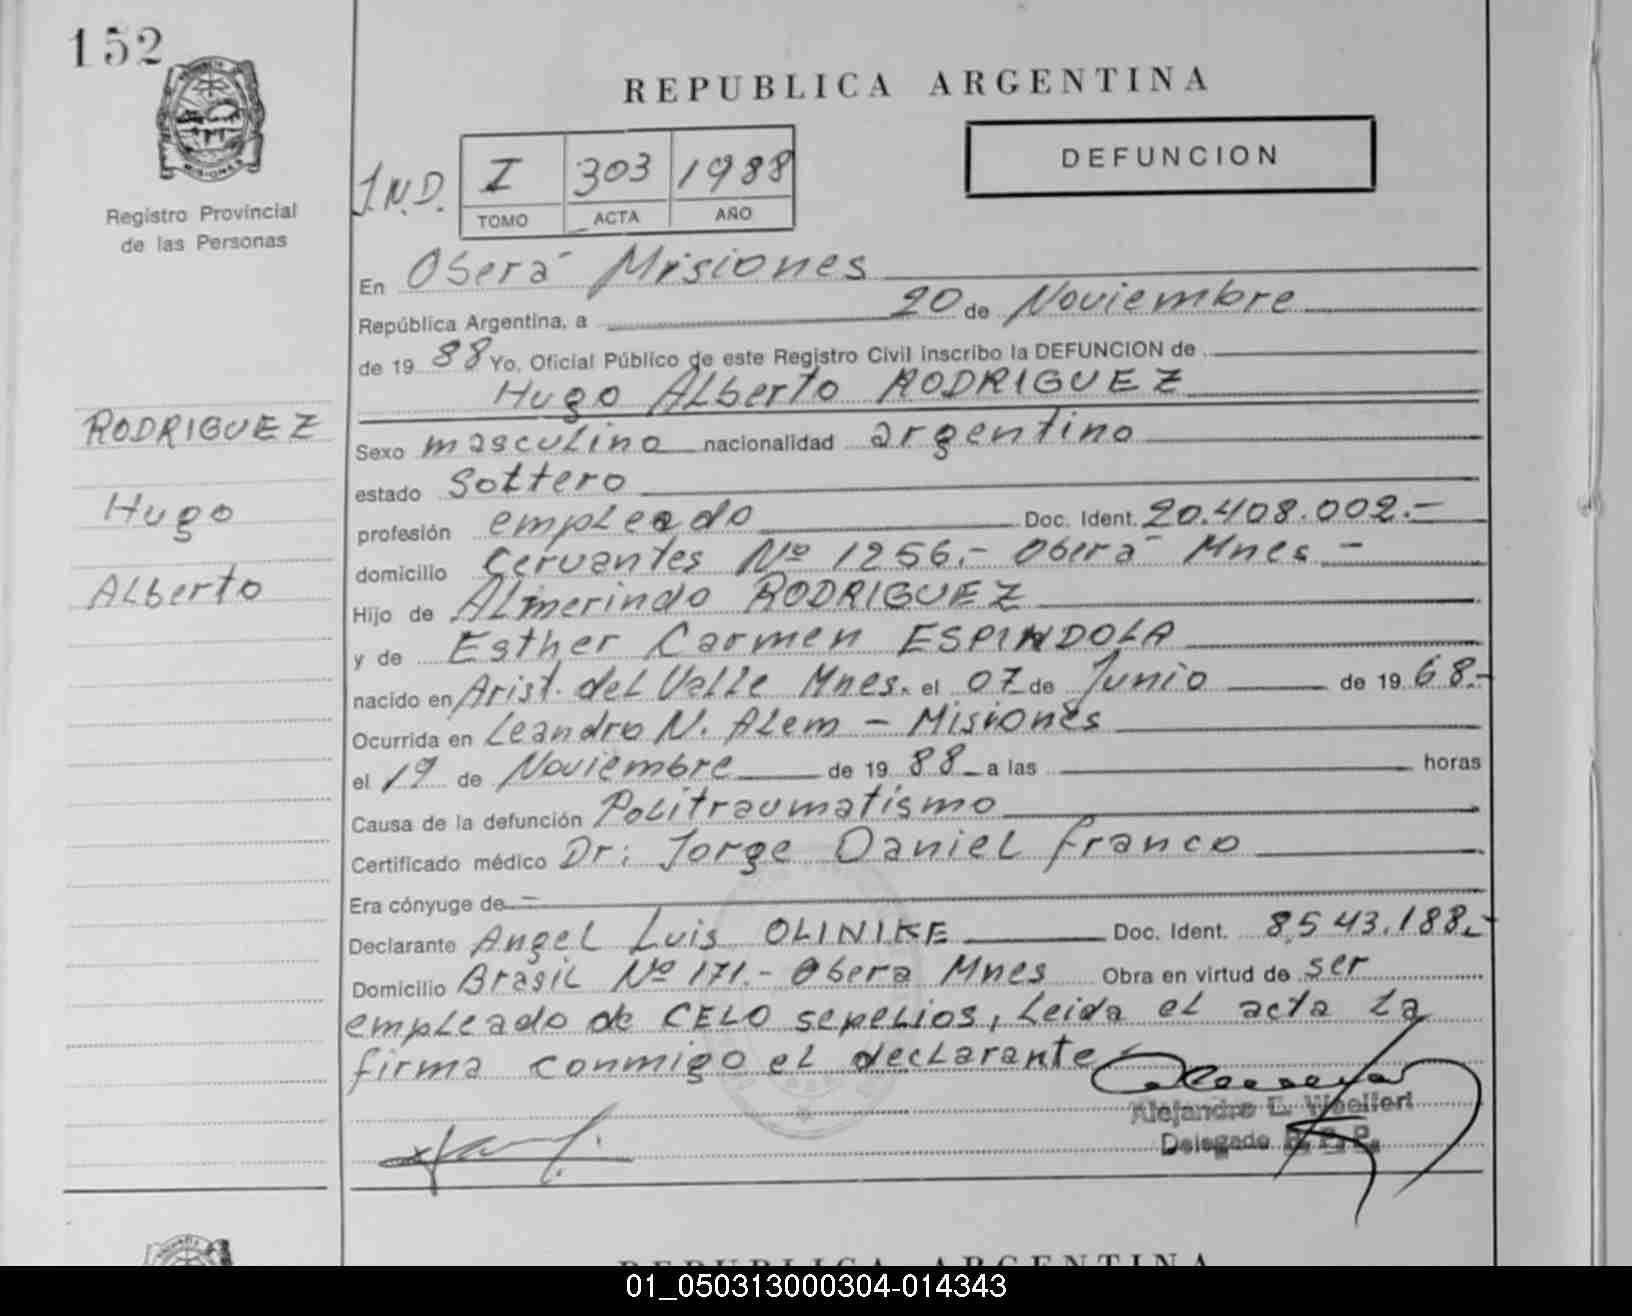 152
REPUBLICA ARGENTINA
DEFUNCION
J.N.D.
I 303 1988
TOMO ACTA AÑO
Registro Provincial
de las Personas
MISIONES
En Oberá Misiones
República Argentina, a 20 de Noviembre
de 19 88 Yo, Oficial Público de este Registro Civil inscribo la DEFUNCION de
Hugo Alberto RODRIGUEZ
RODRIGUEZ
Hugo
Alberto
Sexo masculino nacionalidad argentino
estado Soltero
profesión empleado Doc. Ident. 20.408.002.-
domicilio Cervantes Nº 1256.- Oberá Mnes -
Hijo de Almerindo RODRIGUEZ
y de Esther Carmen ESPINDOLA
nacido en Arist. del Valle Mnes. el 07 de Junio de 19 68.-
Ocurrida en Leandro N. Alem - Misiones
el 19 de Noviembre de 19 88 a las horas
Causa de la defunción Politraumatismo
Certificado médico Dr: Jorge Daniel Franco
Era cónyuge de -
Declarante Angel Luis OLINIKE Doc. Ident. 8.543.188.-
Domicilio Brasil Nº 171.- Obera Mnes Obra en virtud de ser
empleado de CELO sepelios, Leida el acta la
firma conmigo el declarante
Alejandro E. Woellert
Delegado R. P. P.
REPUBLICA ARGENTINA
01_050313000304-014343